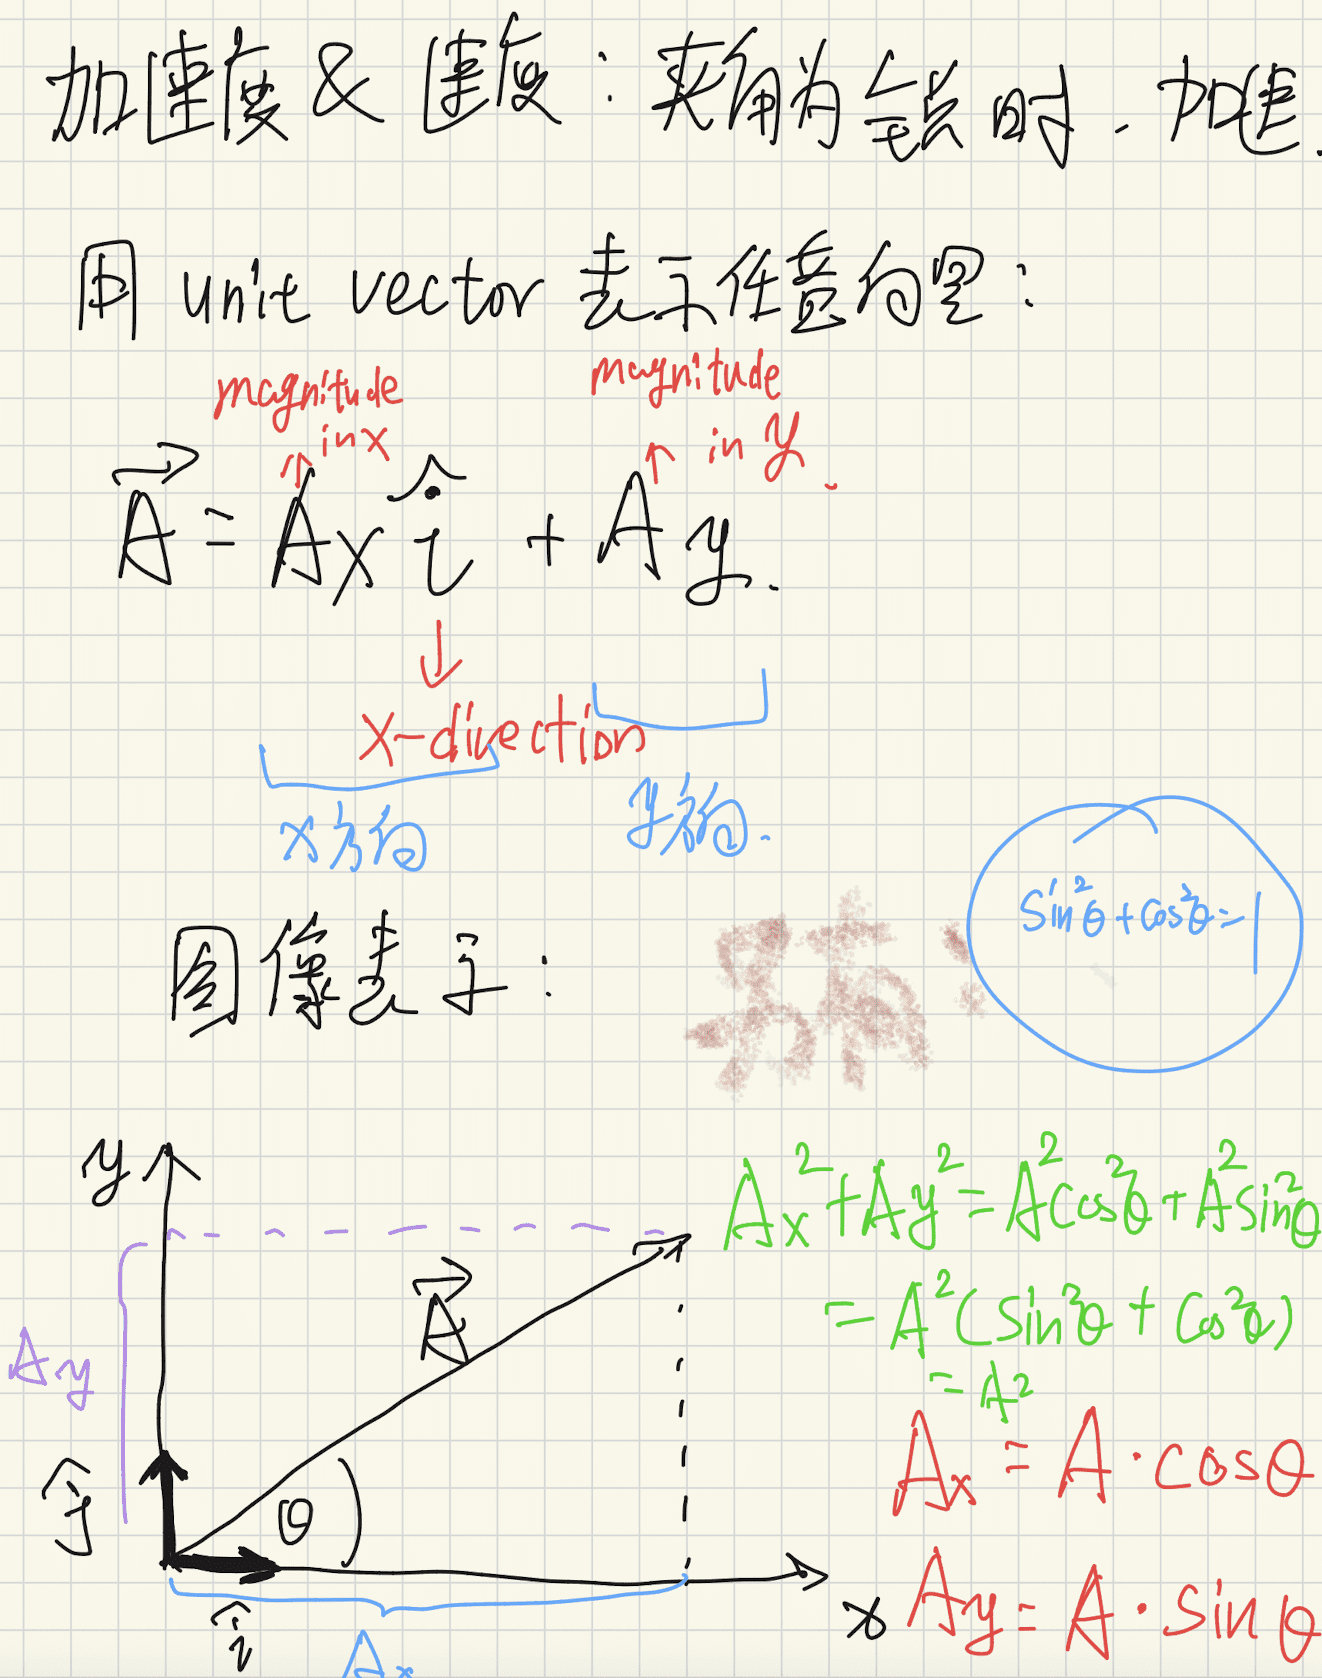 加速度 & 速度：夹角为锐时，加速
用 unit vector 表示任意向量：
magnitude in x
magnitude in y.
A⃗ = Ax î + Ay.
x-direction
x方向
y方向.
sin²θ + cos²θ = 1
图像表示：
y
Ax² + Ay² = A²cos²θ + A²sin²θ
A⃗
= A²(sin²θ + cos²θ)
Ay
= A²
Ax = A·cosθ
ĵ
θ
x
Ay = A·sinθ
î
Ax